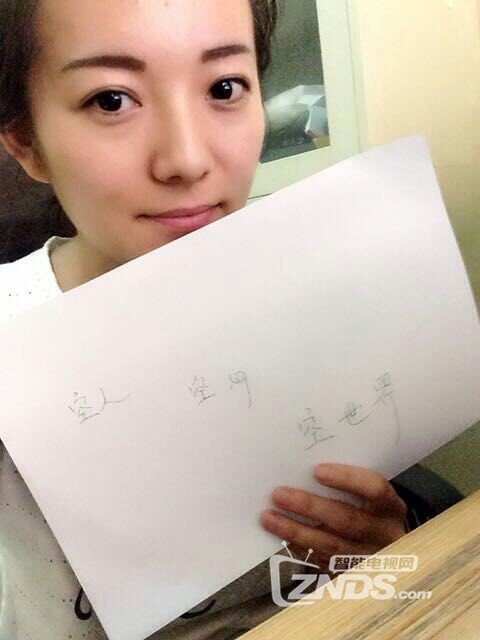 空人 空
空世界
智能电视网
ZNDS.com